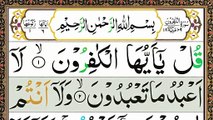 بِسْمِ اللّٰهِ الرَّحْمٰنِ الرَّحِيْمِ
قُلْ يٰۤاَيُّهَا الْكٰفِرُوْنَ ۙ‏﴿۱﴾ لَاۤ
اَعْبُدُ مَا تَعْبُدُوْنَ ۙ‏﴿۲﴾ وَلَاۤ اَنْتُمْ